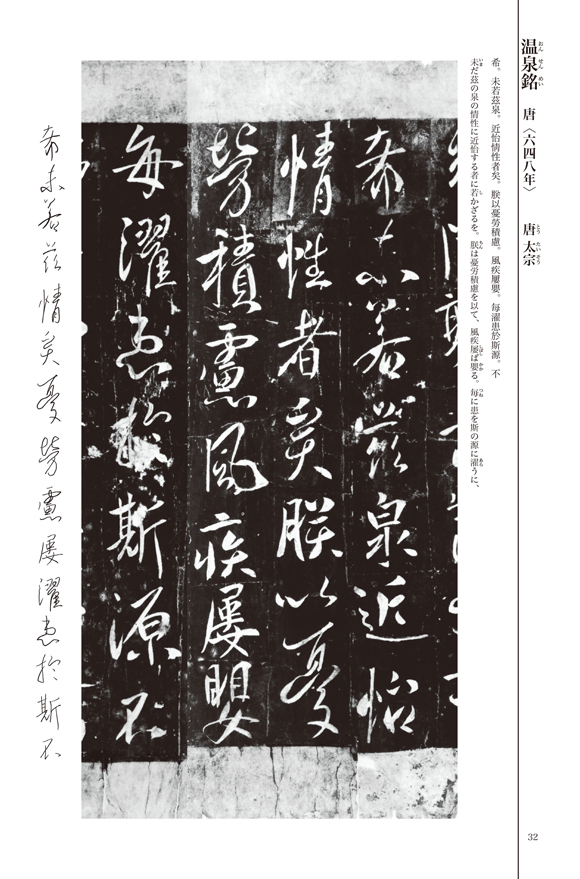 温泉銘 唐〈六四八年〉 唐太宗
おん せん めい
とう たい そう
希。未若茲泉。近怡情性者矣。朕以憂労積慮。風疾屢嬰。毎濯患於斯源。不
未だ茲の泉の情性に近怡する者に若かざるを。朕は憂労積慮を以て、風疾屢ば嬰る。毎に患を斯の源に濯うに、
希未若茲泉近怡
情性者矣朕以憂
労積慮風疾屢嬰
毎濯患於斯源不
希未若茲情矣憂労慮屢濯患於斯不
32